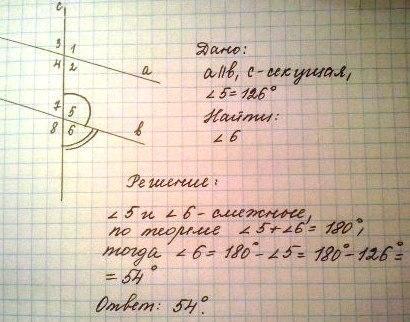 c
3 1
4 2
a
7 5
8 6
b
Дано:
a∥b, c-секущая,
∠5=126°
Найти:
∠6
Решение:
∠5 и ∠6-смежные,
по теореме ∠5+∠6=180°,
тогда ∠6=180°-∠5=180°-126°=
=54°
Ответ: 54°.